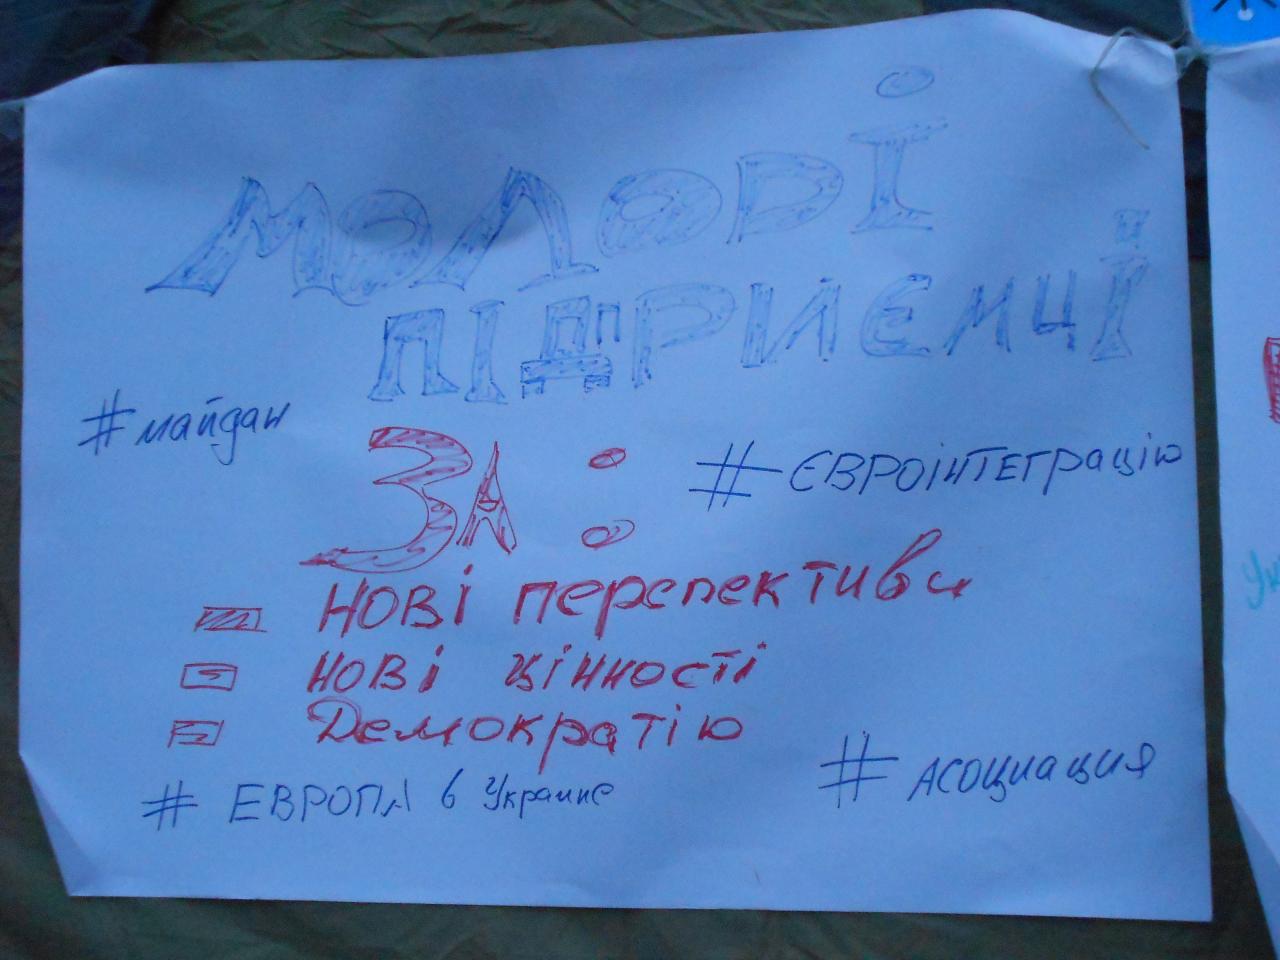 МОЛОДІ
ПІДПРИЄМЦІ
#майдан
ЗА:
#ЄВРОІНТЕГРАЦІЮ
НОВІ перспективи
НОВІ цінності
Демократію
# ЕВРОПА в Украине
# АСОЦИАЦИЯ